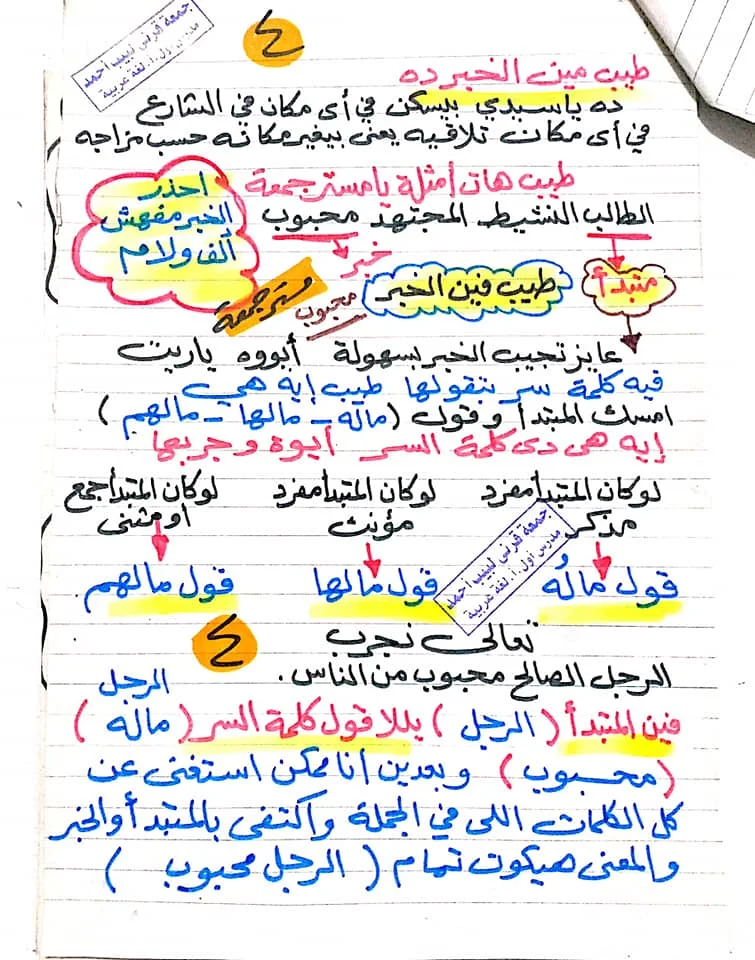 جمعة قرني لبيب أحمد
مدرس أول أ. لغة عربية
٤
طيب مين الخبر ده
ده ياسيدي بيسكن في أى مكان في الشارع
في أى مكان تلاقيه يعنى بيغير مكانه حسب مزاجه
طيب هات أمثلة يا مستر جمعة
احذر
الخبر مفهش
ألف ولام
الطالب النشيط المجتهد محبوب
خبر
مبتدأ
طيب فين الخبر
محبوب
مستر جمعة
عايز تجيب الخبر بسهولة أيووه ياريت
فيه كلمة سر بنقولها طيب إيه هي
امسك المبتدأ وقول (ماله - مالها - مالهم)
إيه هى دى كلمة السر أيوة وجربها
لو كان المبتدأ مفرد مذكر
قول مالُه
لو كان المبتدأ مفرد مؤنث
قول مالها
لو كان المبتدأ جمع او مثنى
قول مالهم
جمعة قرني لبيب أحمد
مدرس أول أ. لغة عربية
٤
تعالى نجرب
الرجل الصالح محبوب من الناس.
الرجل
فين المبتدأ (الرجل) يللا قول كلمة السر (ماله)
(محبوب) وبعدين أنا ممكن استغنى عن
كل الكلمات اللى في الجملة واكتفى بالمبتدأ والخبر
والمعنى هيكون تمام (الرجل محبوب)